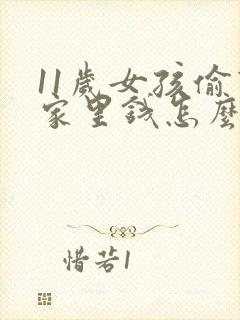 11歲女孩偷
家里錢怎麼
惜若1